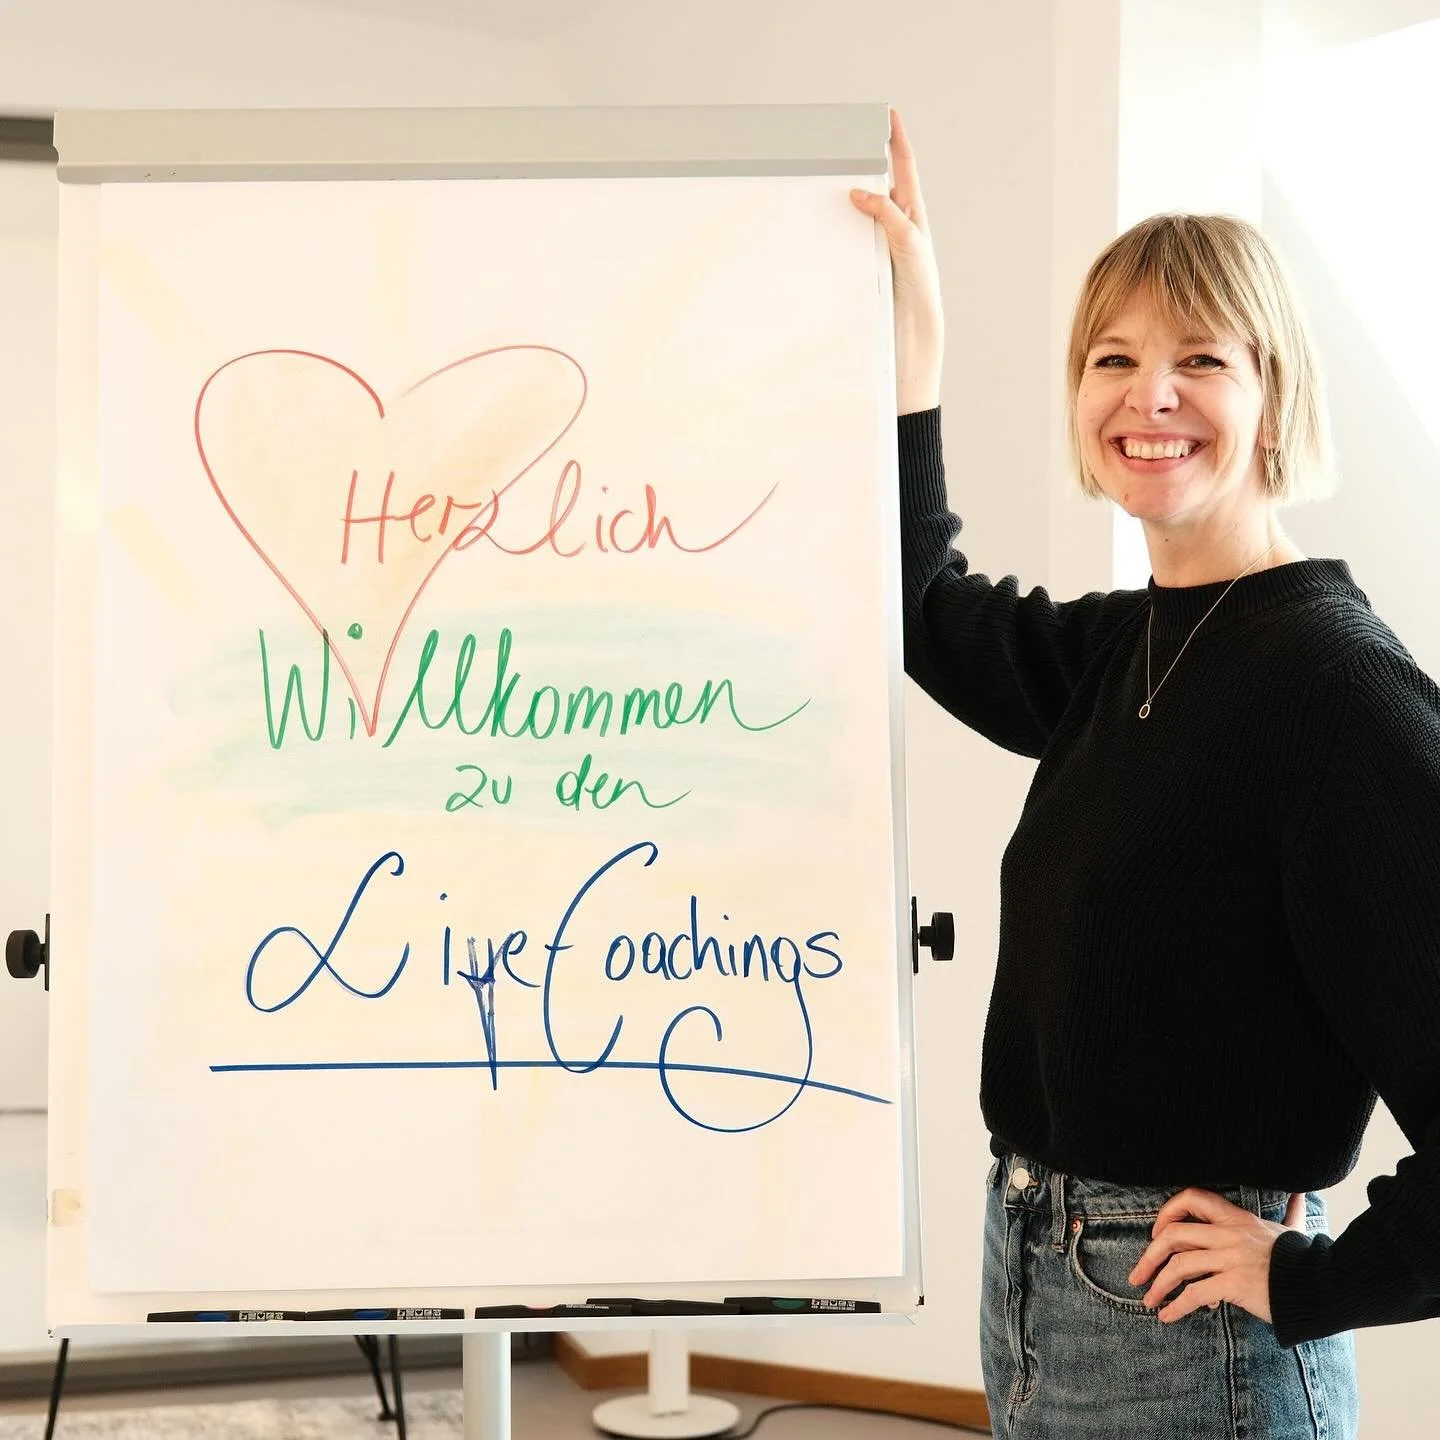 Herzlich
Willkommen
zu den
Live Coachings